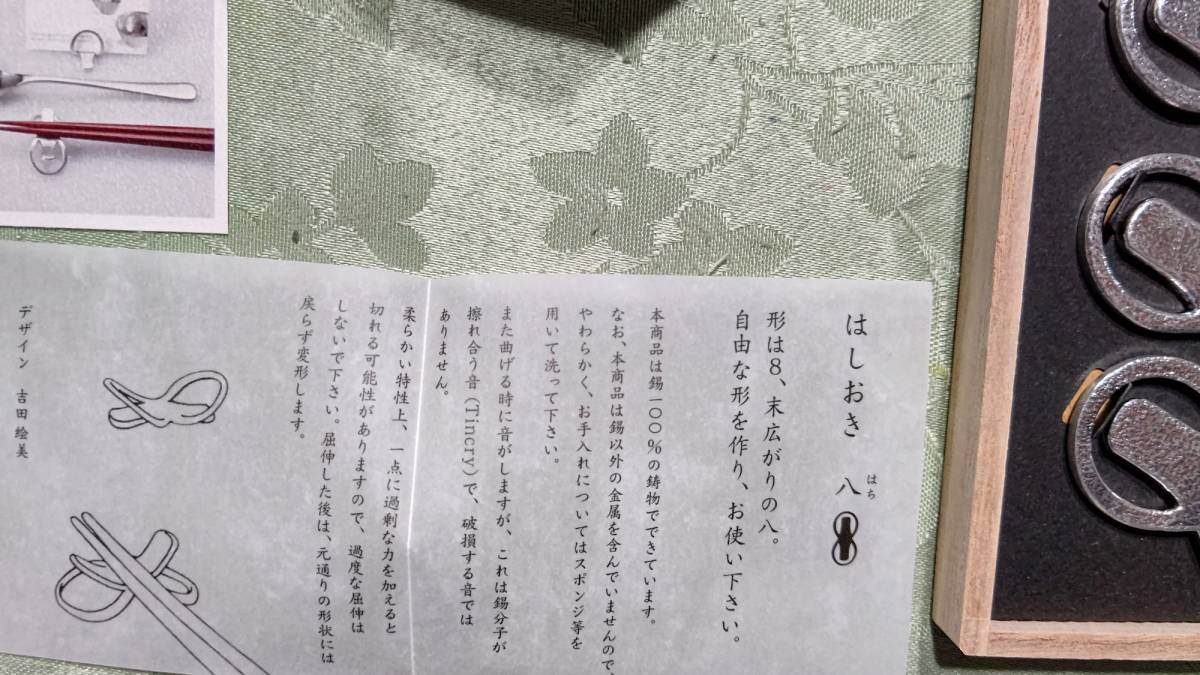 はしおき 八
はち
形は8、末広がりの八。
自由な形を作り、お使い下さい。
本商品は錫一〇〇%の鋳物でできています。
なお、本商品は錫以外の金属を含んでいませんので、
やわらかく、お手入れについてはスポンジ等を
用いて洗って下さい。
また曲げる時に音がしますが、これは錫分子が
擦れ合う音(Tincry)で、破損する音では
ありません。
柔らかい特性上、一点に過剰な力を加えると
切れる可能性がありますので、過度な屈伸は
しないで下さい。屈伸した後は、元通りの形状には
戻らず変形します。
デザイン 吉田絵美